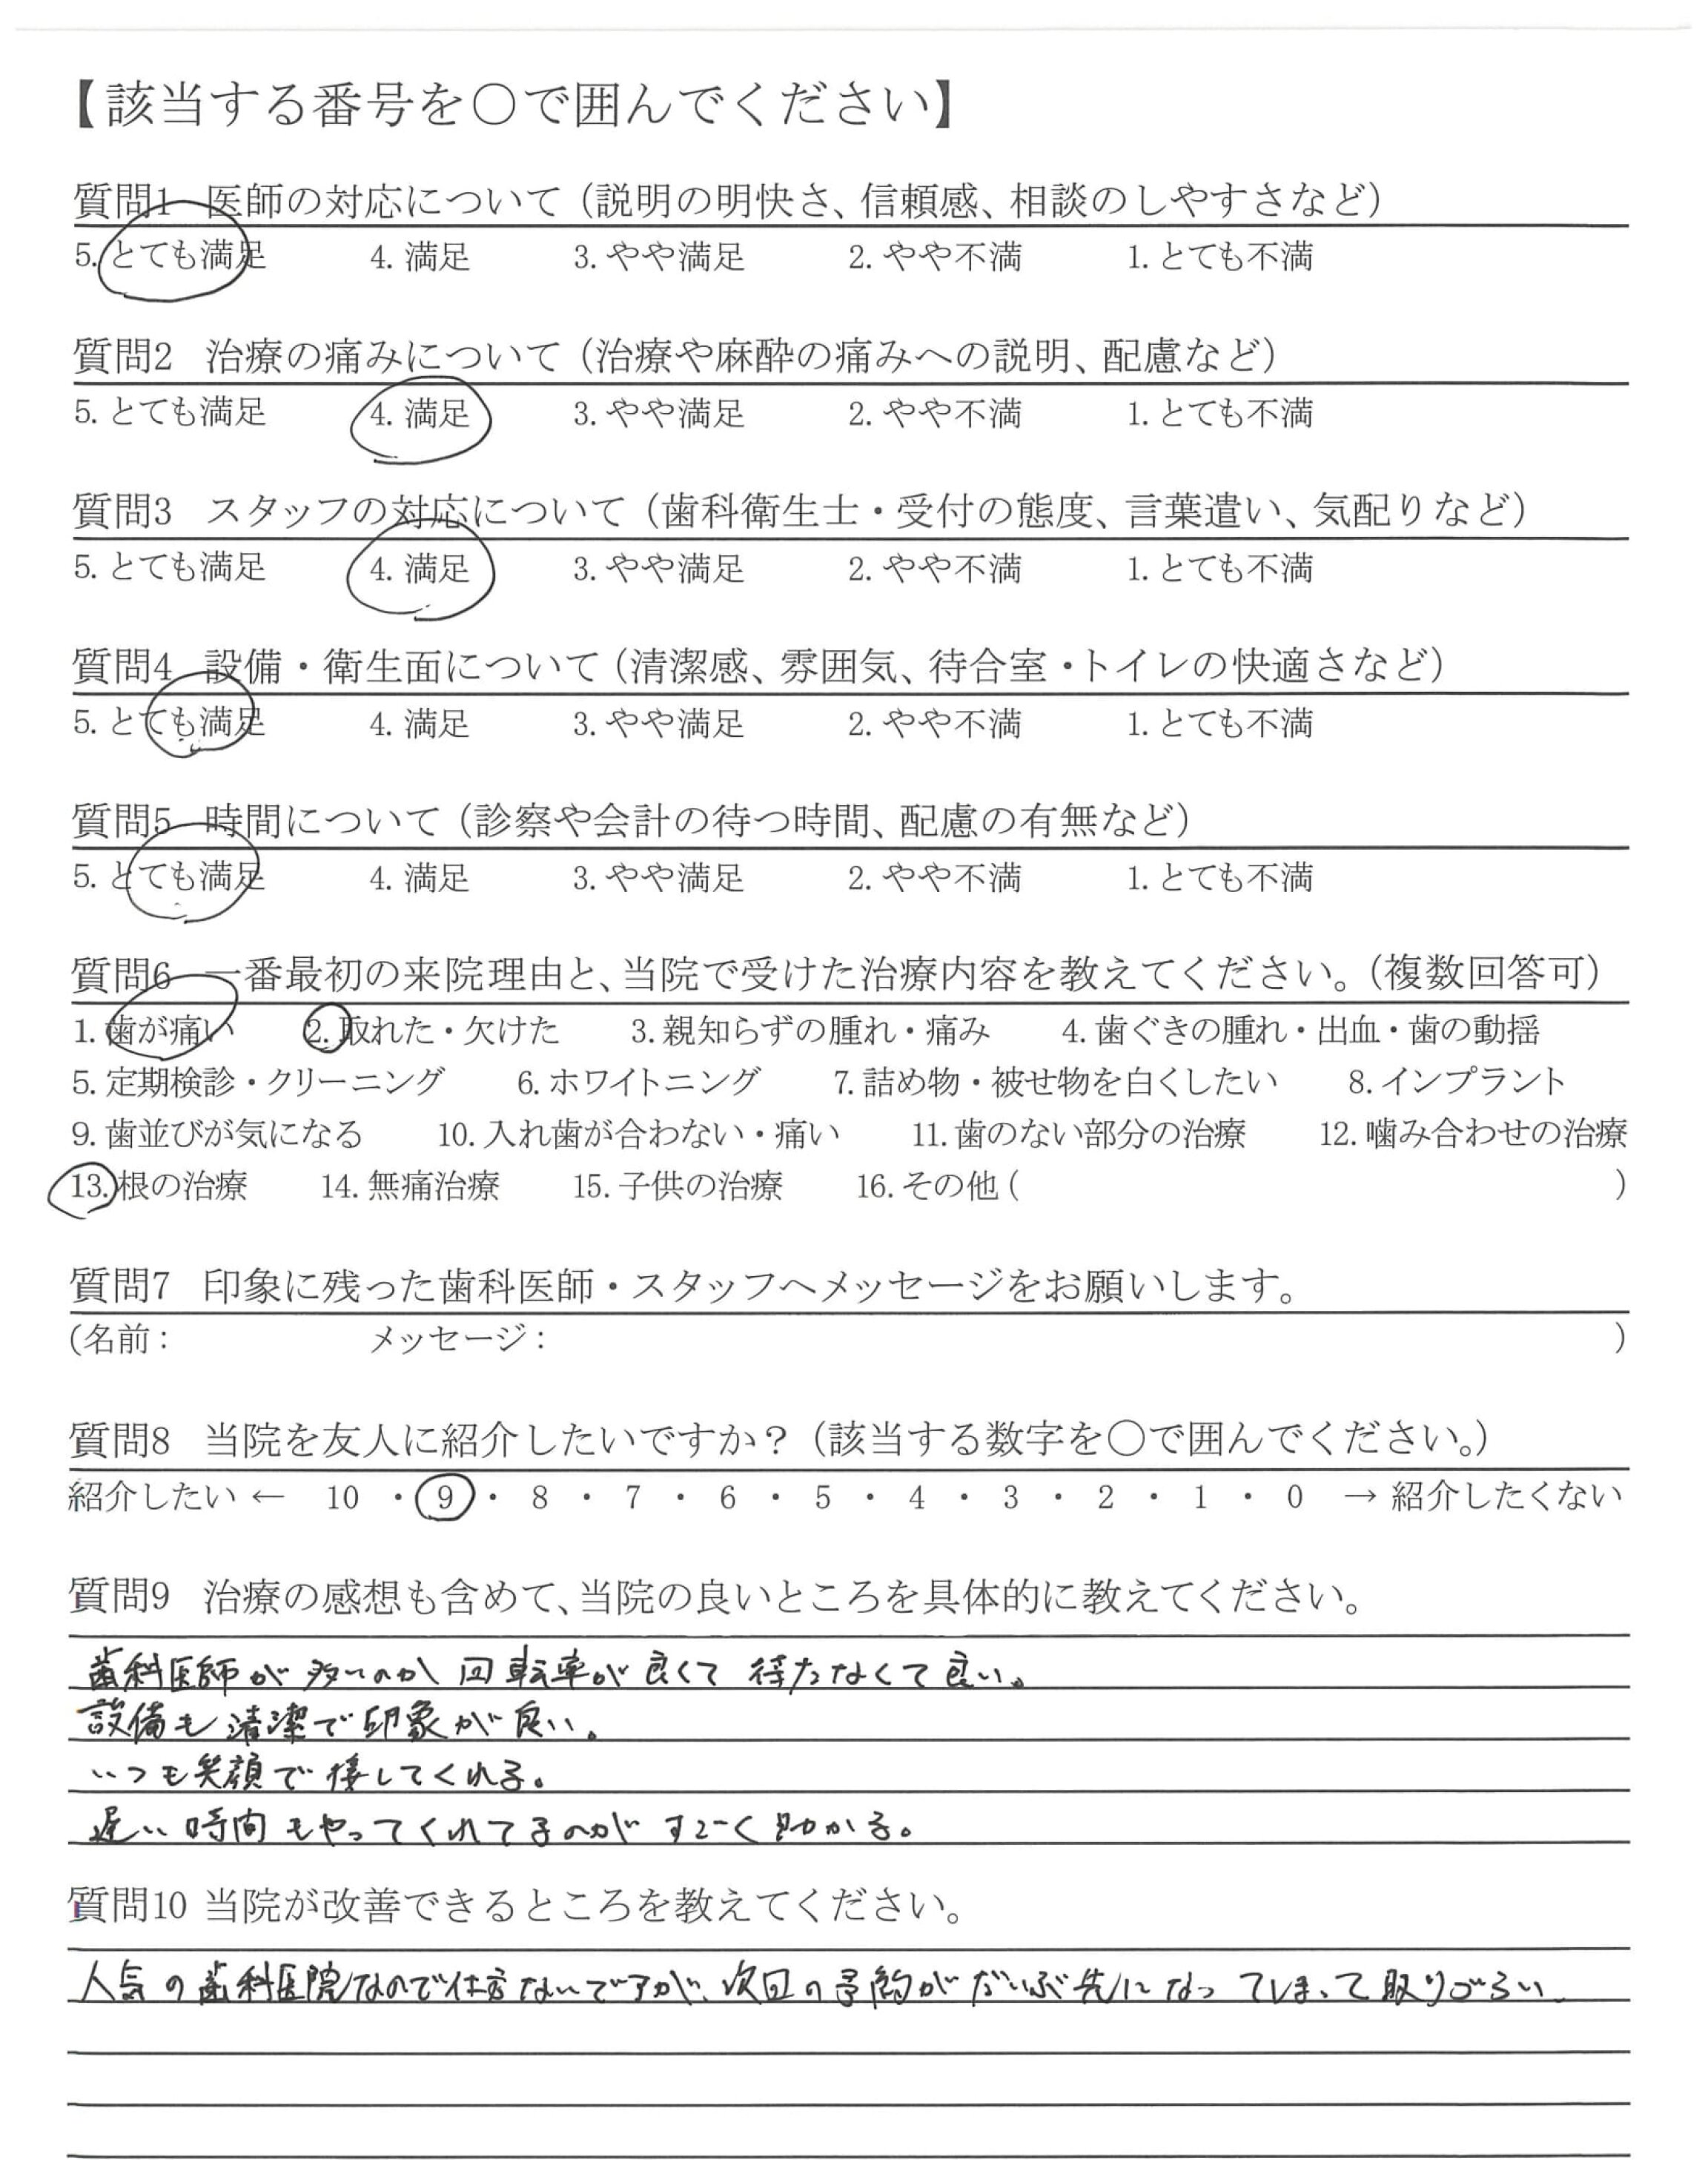 【該当する番号を○で囲んでください】
質問1 医師の対応について（説明の明快さ、信頼感、相談のしやすさなど）
5. とても満足 4. 満足 3. やや満足 2. やや不満 1. とても不満
質問2 治療の痛みについて（治療や麻酔の痛みへの説明、配慮など）
5. とても満足 4. 満足 3. やや満足 2. やや不満 1. とても不満
質問3 スタッフの対応について（歯科衛生士・受付の態度、言葉遣い、気配りなど）
5. とても満足 4. 満足 3. やや満足 2. やや不満 1. とても不満
質問4 設備・衛生面について（清潔感、雰囲気、待合室・トイレの快適さなど）
5. とても満足 4. 満足 3. やや満足 2. やや不満 1. とても不満
質問5 時間について（診察や会計の待つ時間、配慮の有無など）
5. とても満足 4. 満足 3. やや満足 2. やや不満 1. とても不満
質問6 一番最初の来院理由と、当院で受けた治療内容を教えてください。（複数回答可）
1. 歯が痛い 2. 取れた・欠けた 3. 親知らずの腫れ・痛み 4. 歯ぐきの腫れ・出血・歯の動揺
5. 定期検診・クリーニング 6. ホワイトニング 7. 詰め物・被せ物を白くしたい 8. インプラント
9. 歯並びが気になる 10. 入れ歯が合わない・痛い 11. 歯のない部分の治療 12. 噛み合わせの治療
13. 根の治療 14. 無痛治療 15. 子供の治療 16. その他（ ）
質問7 印象に残った歯科医師・スタッフへメッセージをお願いします。
（名前： メッセージ： ）
質問8 当院を友人に紹介したいですか？（該当する数字を○で囲んでください。）
紹介したい ← 10 ・ 9 ・ 8 ・ 7 ・ 6 ・ 5 ・ 4 ・ 3 ・ 2 ・ 1 ・ 0 → 紹介したくない
質問9 治療の感想も含めて、当院の良いところを具体的に教えてください。
歯科医師が多いのか 回転率が良くて 待たなくて良い。
設備も清潔で印象が良い。
いつも笑顔で接してくれる。
遅い時間もやってくれてるのがすごく助かる。
質問10 当院が改善できるところを教えてください。
人気の歯科医院なので仕方ないですが、次回の予約がだいぶ先になってしまって取りづらい